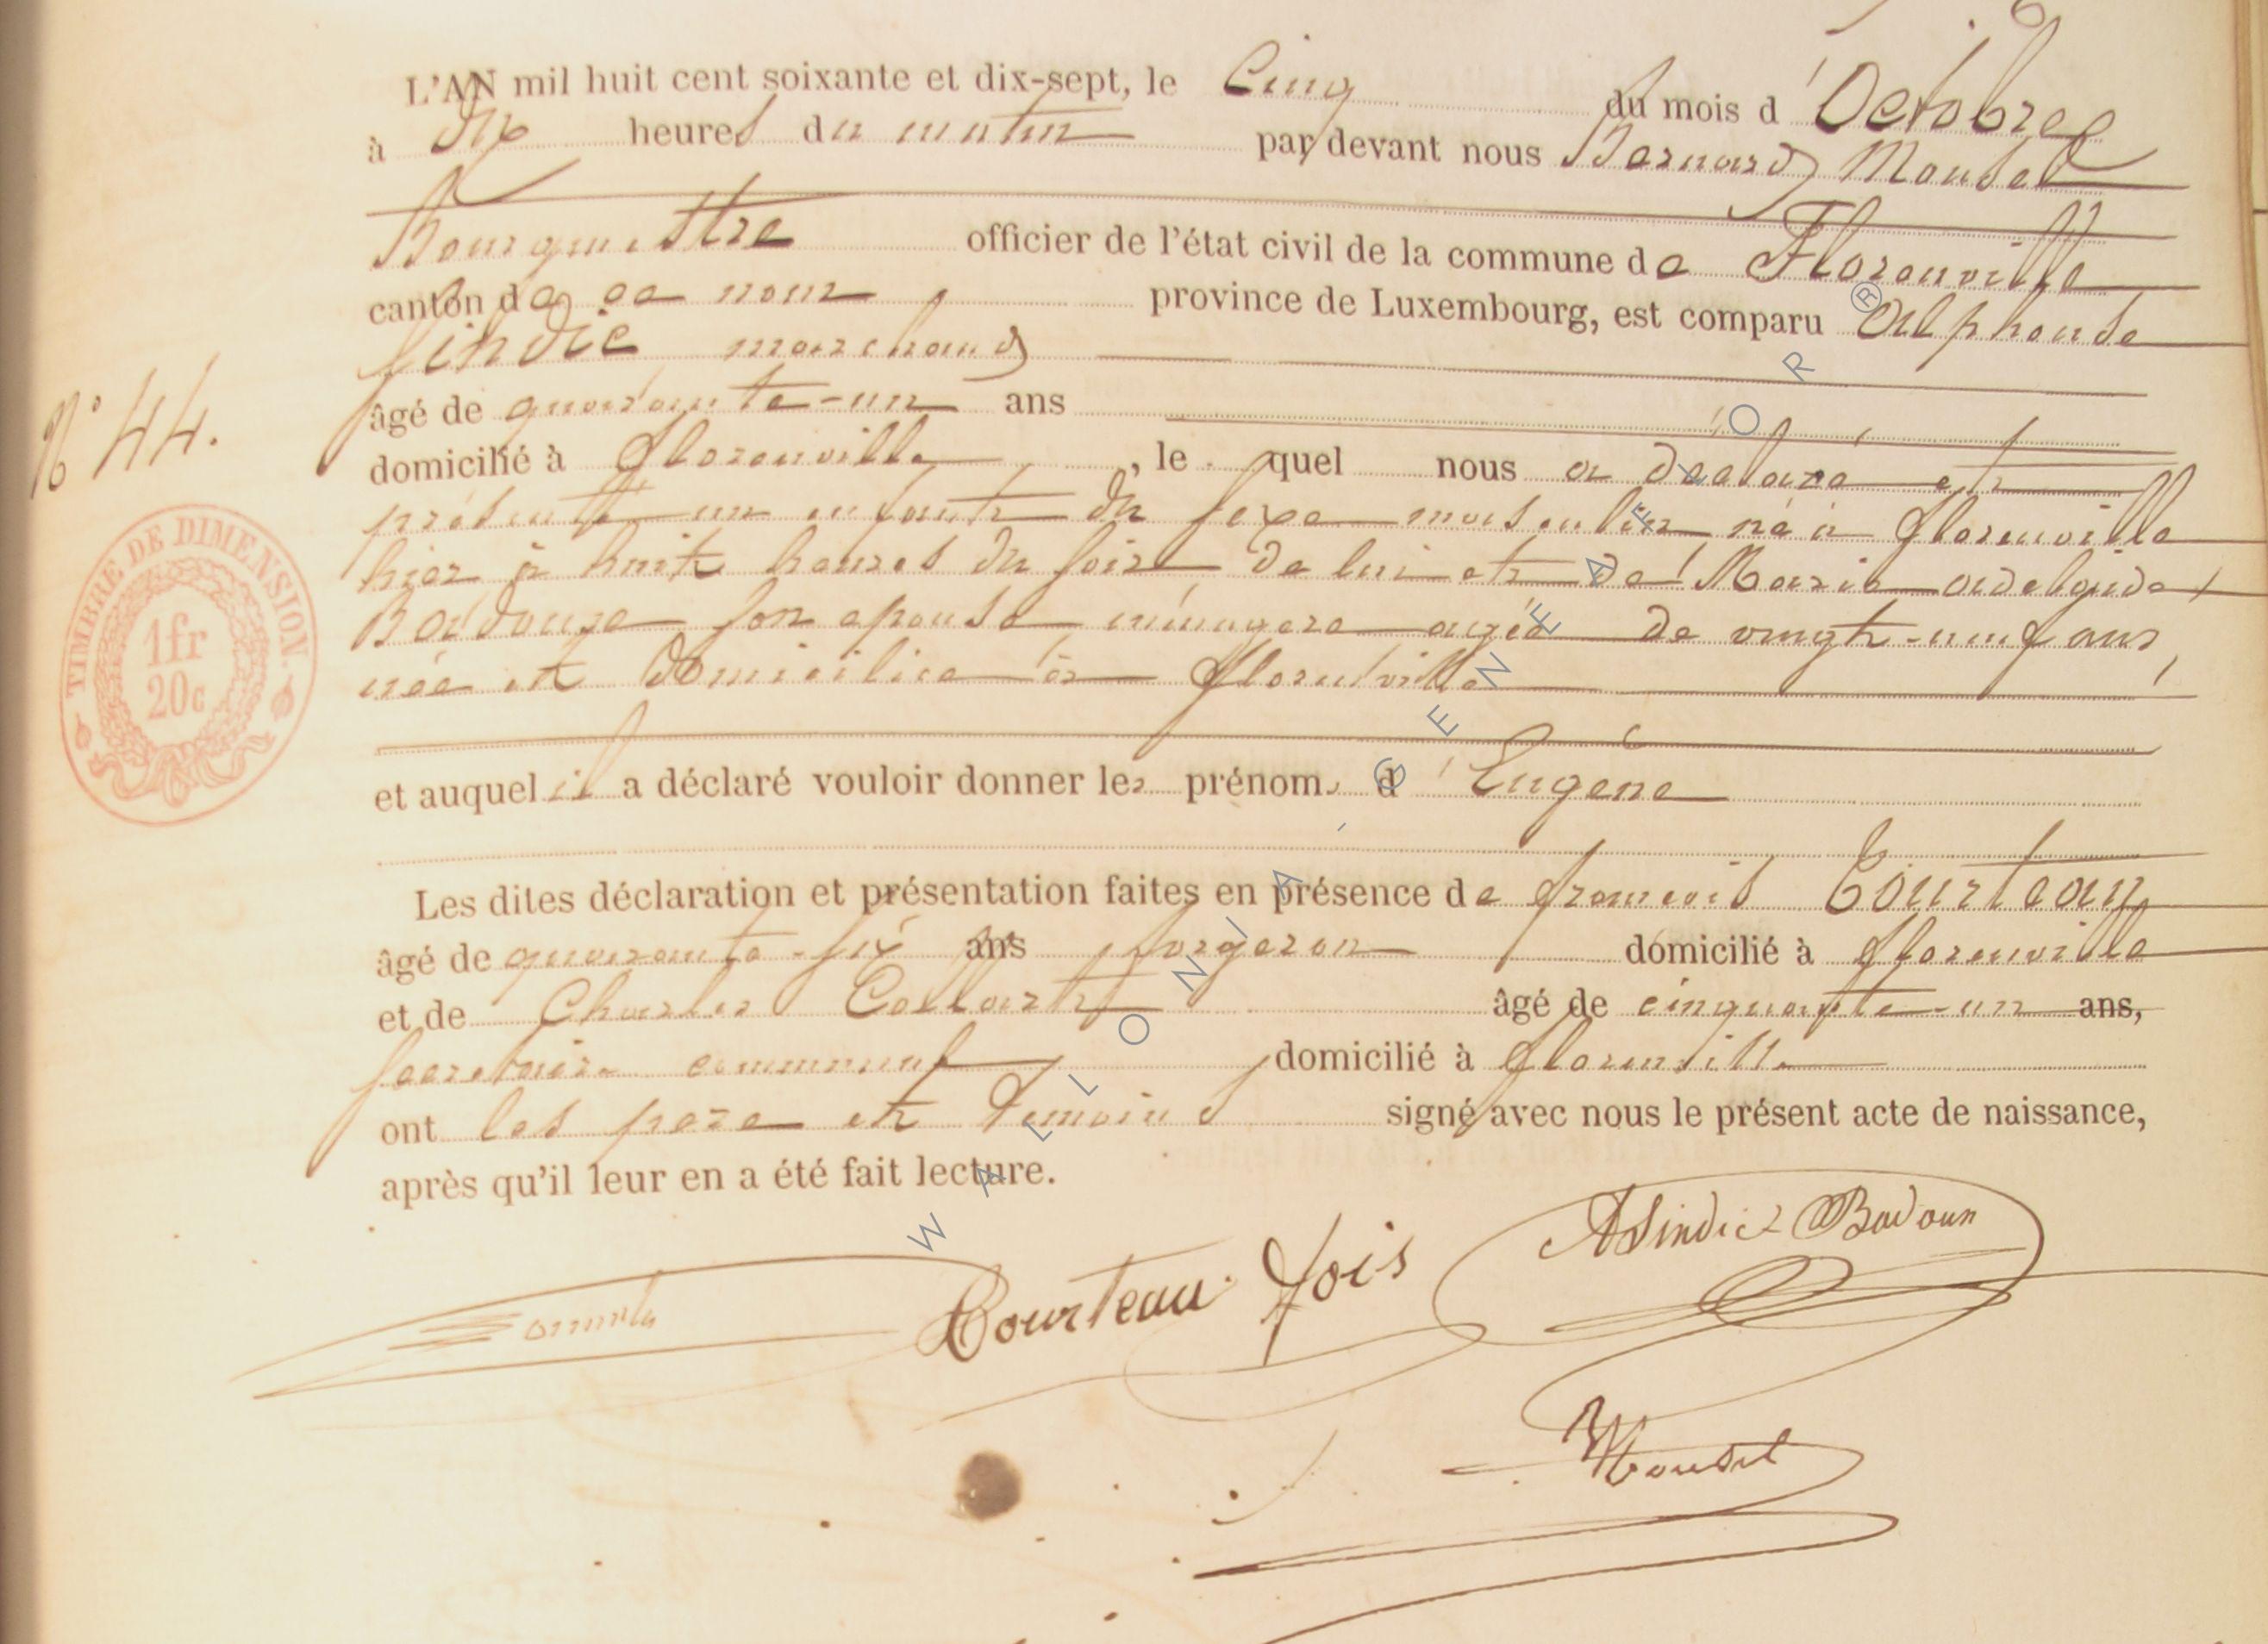 L'AN mil huit cent soixante et dix-sept, le Cinq du mois d'Octobre
à dix heures du matin par devant nous Bernard Mousel
Bourgmestre officier de l'état civil de la commune de Florenville
canton de ce nom, province de Luxembourg, est comparu Alphonse
Sindic marchand
âgé de quarante-un ans
N° 44.
domicilié à Florenville, le quel nous a déclaré et
présenté un enfant du sexe masculin né à Florenville
hier à huit heures du soir de lui et de Marie Adelaide
Badoux son epouse ménagere agée de vingt-neuf ans,
née et domiciliée à Florenville
TIMBRE DE DIMENSION.
1fr
20c
et auquel il a déclaré vouloir donner les prénoms d'Eugène
Les dites déclaration et présentation faites en présence de francois Courteau
âgé de quarante-six ans forgeron domicilié à florenville
et de Charles Collart âgé de cinquante-un ans,
secretaire communal domicilié à florenville
ont les pere et temoins signé avec nous le présent acte de naissance,
après qu'il leur en a été fait lecture.
Courteau fois
ASindic Badoux
Mousel
WALLONIA - GENEAFLOR ®